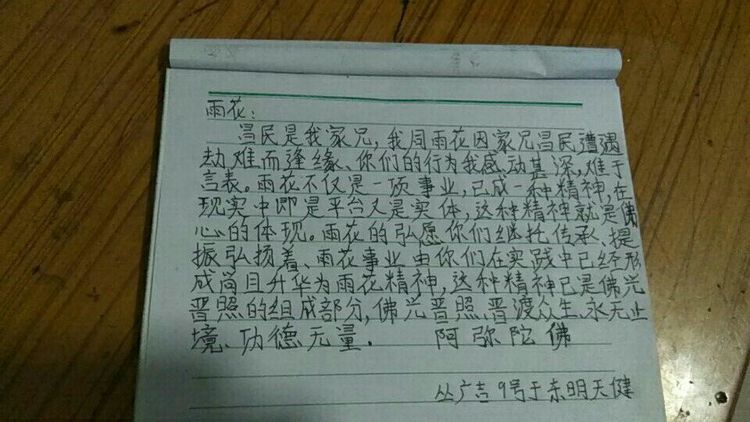 雨花:
昌民是我家兄,我同雨花因家兄昌民遭遇
劫难而逢缘、你们的行为我感动甚深,难于
言表。雨花不仅是一项事业,已成一种精神,在
现实中即是平台又是实体,这种精神就是佛
心的体现。雨花的弘愿你们继托传承、提
振弘扬着、雨花事业由你们在实践中已经形
成尚且升华为雨花精神,这种精神已是佛光
晋照的组成部分,佛光晋照、晋渡众生、永无止
境、功德无量. 阿弥陀佛
丛广吉9号于东明天健